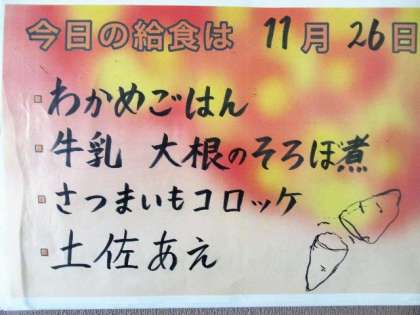 今日の給食は 11月 26日
わかめごはん
牛乳 大根のそろぼ煮
さつまいもコロッケ
土佐あえ